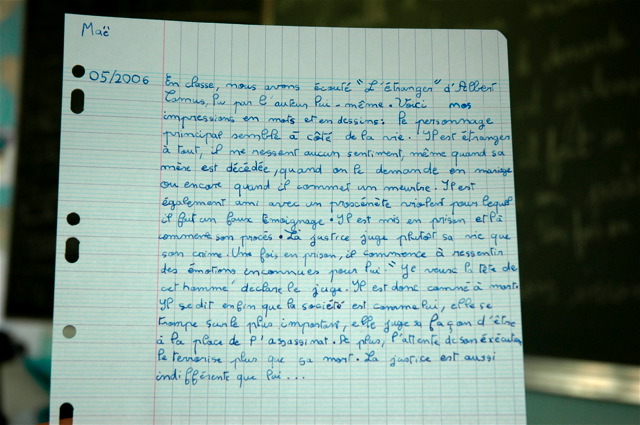 Maë
05/2006 En classe, nous avons écouté "L'étranger" d'Albert
Camus, lu par le auteur lui-même. Voici mos
impressions en mots et en dessins: le personnage
principal semble à côté de la vie. Il est étranger
à tout, il me ressent aucun sentiment, même quand sa
mère est décédée, quand on le demande en mariage
ou encore quand il commet un meurtre. Il est
également ami avec un proxénète violent pour lequel
il fait un faux témoignage. Il est mis en prison et là
commence son procès. La justice juge plutôt sa vie que
son crime. Une fois en prison, il commence à ressentir
des émotions inconnues pour lui. "Je veux la tête de
cet homme" déclare le juge. Il est donc damné à mort.
Il se dit enfin que la société est comme lui, elle se
trompe sur le plus important, elle juge sa façon d'être
à la place de l'assassinat. De plus, l'attente de son exécution
le terrorise plus que sa mort. La justice est aussi
indifférente que lui...